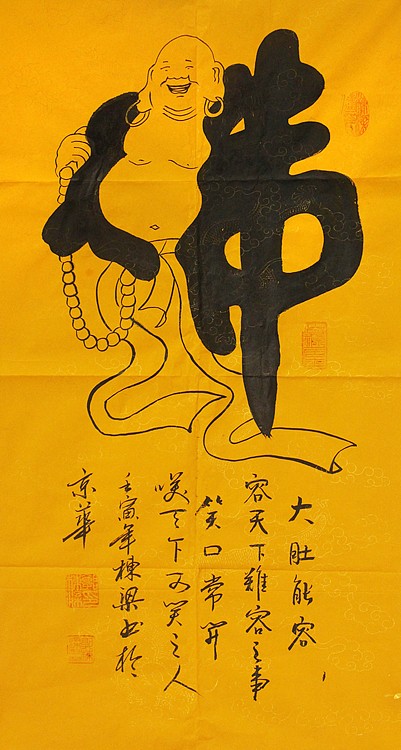 佛
大肚能容
容天下難容之事
笑口常開
咲天下可笑之人
壬寅年棟梁书於
京華